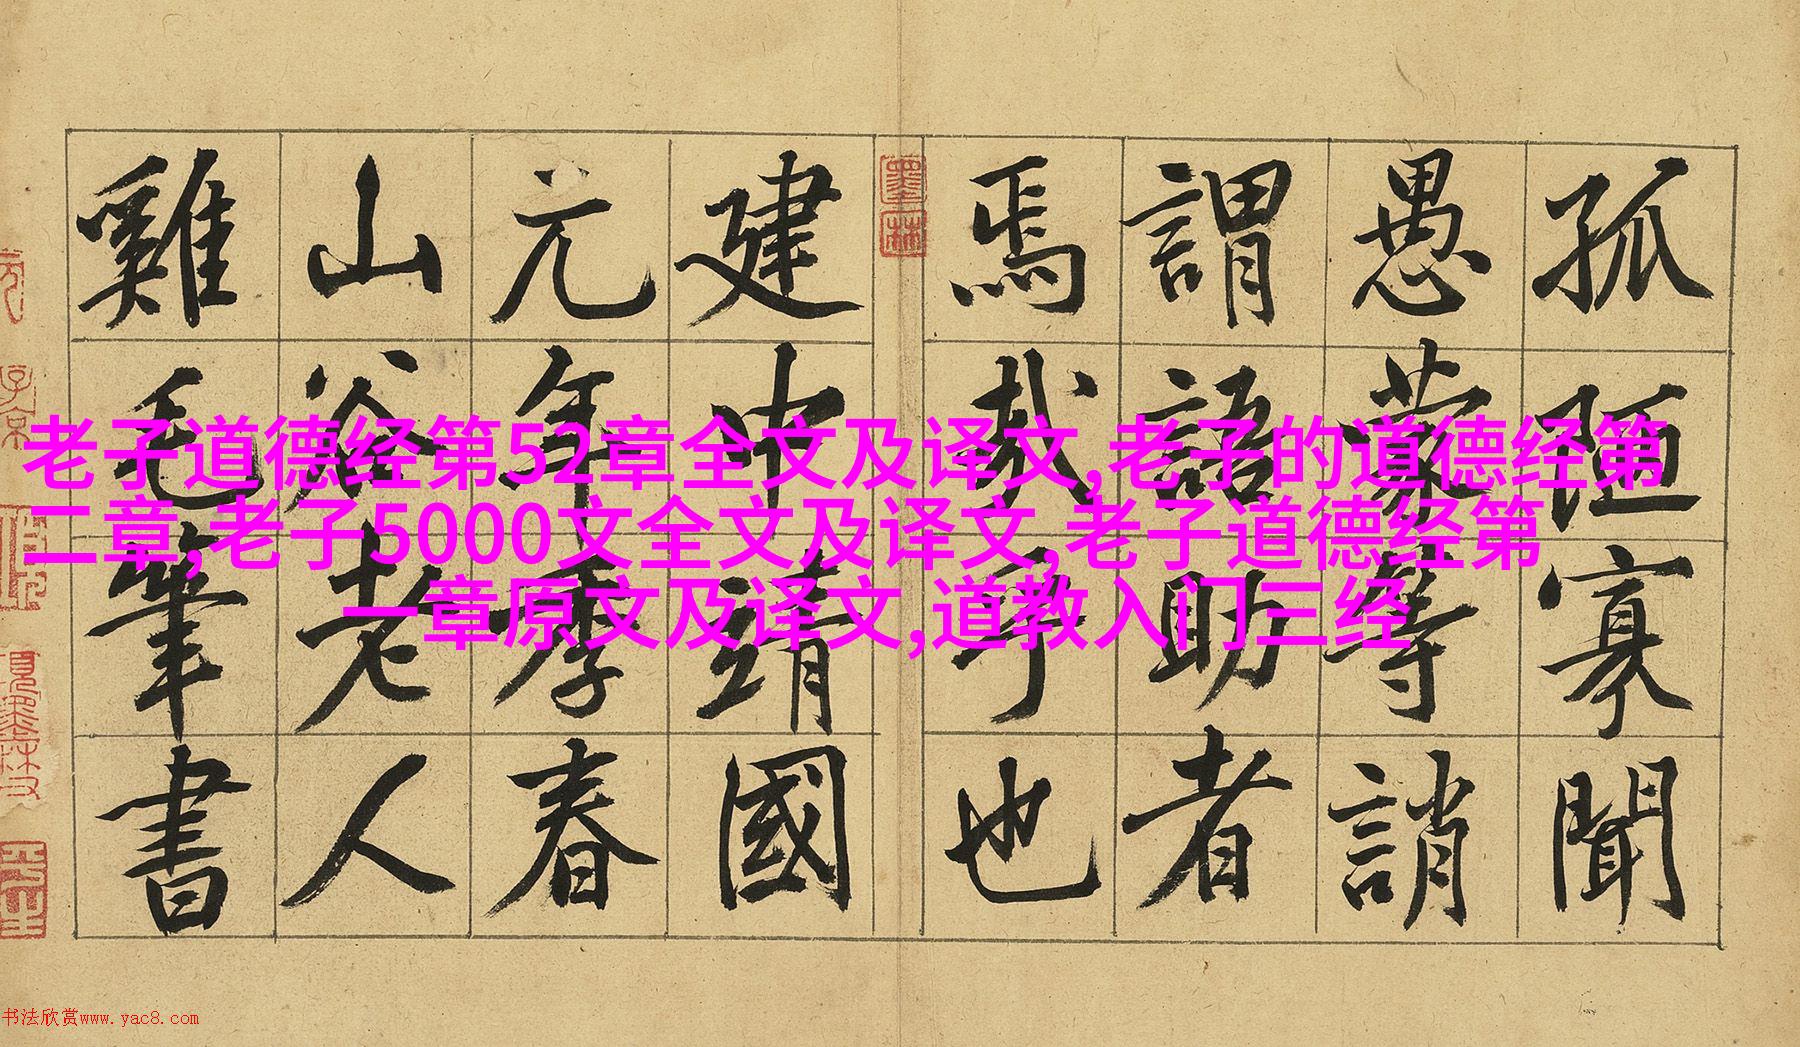 孤陋寡聞
愚蒙等誚
謂語助者
焉哉乎也
建中靖國
元年季春
山谷老人
雞毛筆書
墨林
子京
老子道德经第52章全文及译文,老子的道德经第
二章,老子5000文全文及译文,老子道德经第
一章原文及译文,道教入门三经
书法欣赏www.yac8.com